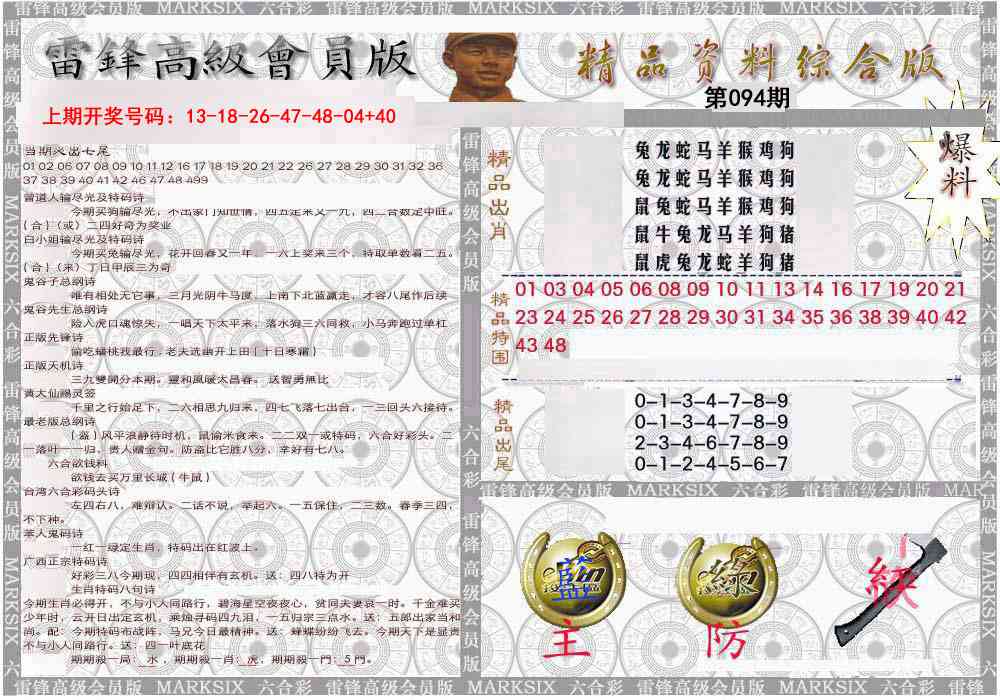 雷锋高级会员版 MARKSIX 六合彩 雷锋高级会员版 MARKSIX 六合彩 雷锋高级会员版 MARKSIX 六合彩 雷锋
雷鋒高級會員版
精品资料综合版
第094期
上期开奖号码：13-18-26-47-48-04+40
当期火出七尾
01 02 06 07 08 09 10 11 12 16 17 18 19 20 21 22 26 27 28 29 30 31 32 36
37 38 39 40 41 42 46 47 48 499
曾道人输尽光及特码诗
今期买狗输尽光，不出家门知世情，四五定来又一九，四二合数定中旺。
{合}(或）二四好奇为奖业
白小姐输尽光及特码诗
今期买兔输尽光，花开回春又一年，一六上奖来三个，特取单数看二五。
{合}(来）丁日甲辰三为奇
鬼谷子总纲诗
唯有相处无它事，三月光阴牛马度，上南下北蓝赢走，才容八尾作后续
鬼谷先生总纲诗
险入虎口魂惊失，一唱天下太平来，落水狗三六同救，小马奔跑过单杠
正版先锋诗
偷吃蟠桃我最行，老夫选幽开上田{十日寒霜}
正版天机诗
三九雙開分本期。靈和風暖太昌春。送智勇無比
黄大仙赐灵签
千里之行始足下，二六相思九归来，四七飞落七出台，一三回头六接待。
最老版总纲诗
{盗}风平浪静待时机，鼠偷米食来。二二双一或特码，六合好彩头。二
一落叶一一归，贵人赠金句。防盗比它胜八分，幸好有七八。
六合欲钱料
欲钱去买万里长城{牛鼠}
台湾六合彩码头诗
左四右八，难辩认。二话不说，举起六。一五保住，二三数。春季三四，
不下神。
苯人鬼码诗
一红一绿定生肖，特码出在红波上。
广西正宗特码诗
好彩三八今期现，四四相伴有玄机。送：四八特为开
生肖特码八句诗
今期生肖必得开，不与小人同路行，碧海星空夜夜心，贫同夫妻哀一时。千金难买
少年时，云开日出定玄机，乘烛寻码四九泪，一五归宗三点水。送：五郎出家当和
尚。配：今期特码布战阵，马兄今日最精神。送：蜂蝶纷纷飞去。今期天下是显贵
不与小人同路行。送：四一叶底花
期期殺一局：水，期期殺一肖：虎，期期殺一門：5門。
精品出肖
兔龙蛇马羊猴鸡狗
兔龙蛇马羊猴鸡狗
鼠兔蛇马羊猴鸡狗
鼠牛兔龙马羊狗猪
鼠虎兔龙蛇羊狗猪
爆料
精品特围
01 03 04 05 06 08 09 10 11 13 14 16 17 19 20 21
23 24 25 26 27 28 29 30 31 34 35 36 38 39 40 42
43 48
精品出尾
0-1-3-4-7-8-9
0-1-3-4-7-8-9
2-3-4-6-7-8-9
0-1-2-4-5-6-7
雷锋高级会员版 MARKSIX 六合彩 雷锋高级会员版 MARK
藍
主
綠
防
雷锋高级会员版 MARKSIX 六合彩 雷锋高级会员版 MARKSIX 六合彩 雷锋高级会员版 MARKSIX 六合彩 雷锋